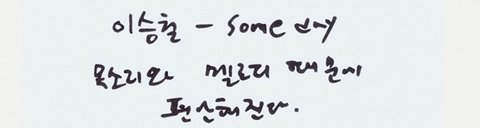 이승철 - some day
목소리와 멜로디 때문에
편안해진다.